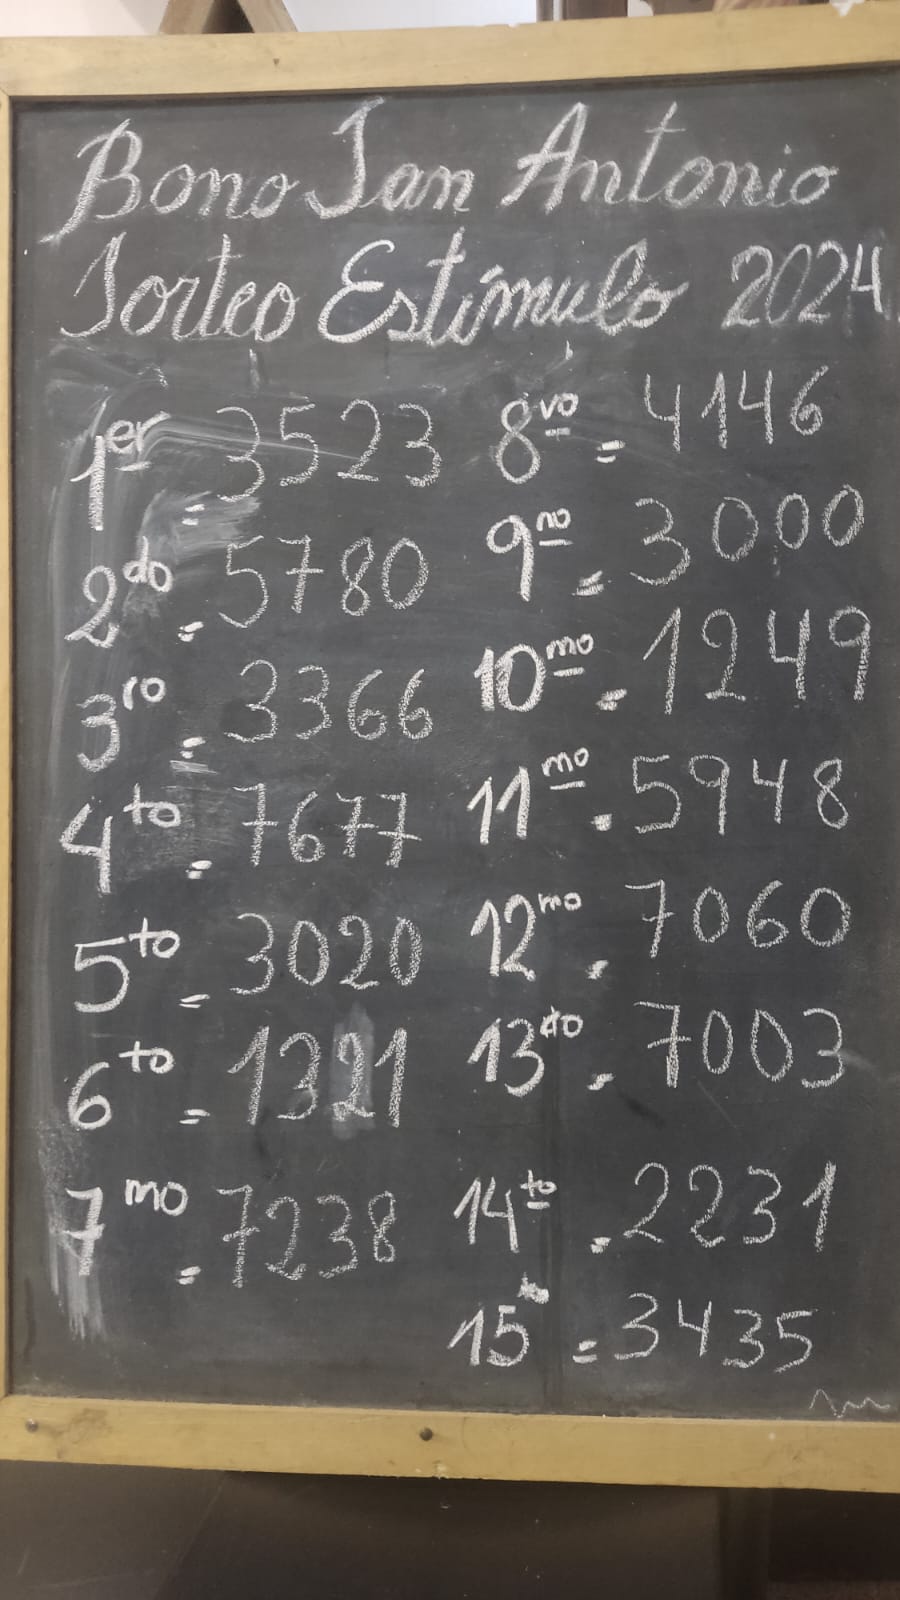 Bono San Antonio
Sorteo Estímulo 2024
1er = 3523
2do = 5780
3ro = 3366
4to = 7677
5to = 3020
6to = 1321
7mo = 7238
8vo = 4146
9no = 3000
10mo = 1249
11mo = 5948
12mo = 7060
13to = 7003
14to = 2231
15to = 3435